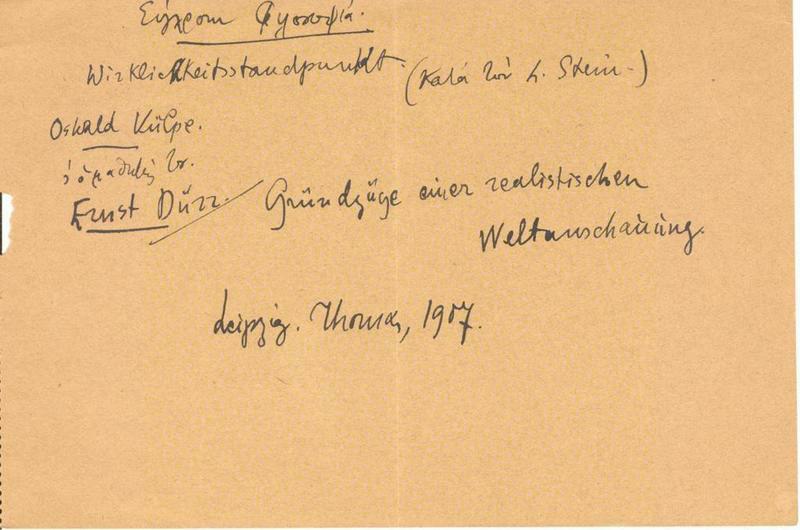 Σύγχρονη Φιλοσοφία.
Wirklichkeitsstandpunkt. (κατά τον L. Stein.)
Oswald Külpe.
ὁ ὀμαθυής του.
Ernst Dürr. Gründzüge einer realistischen
Weltanschauung.
Leipzig. Thomas, 1907.